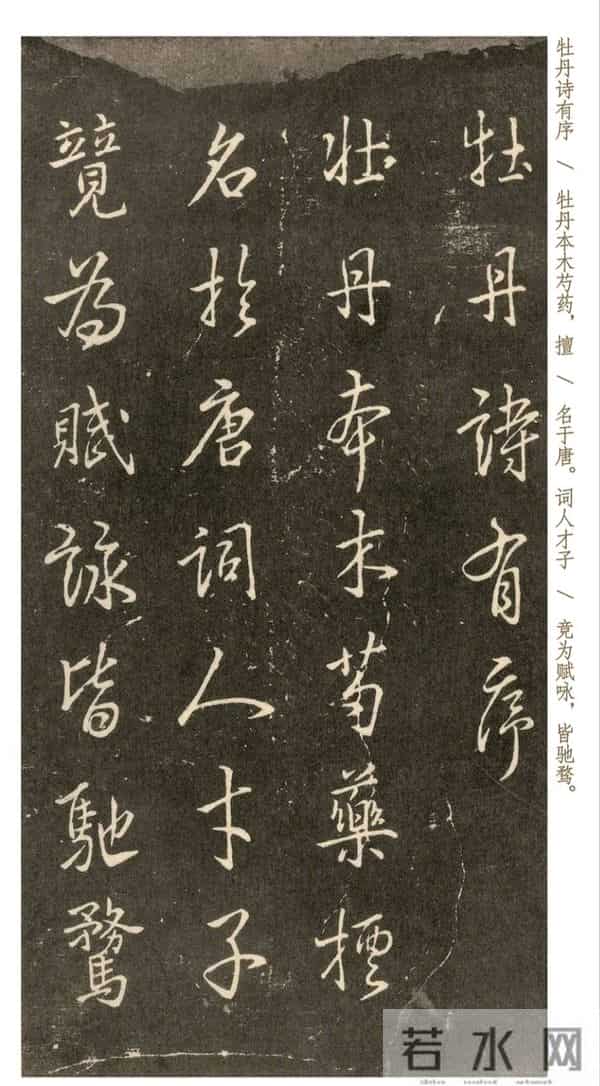 牡丹诗有序 \ 牡丹本木芍药，擅 \ 名于唐。词人才子 \ 竞为赋咏，皆驰骛。
牡丹詩有序
牡丹本木芍藥擅
名於唐詞人才子
競為賦詠皆馳騖
若水网